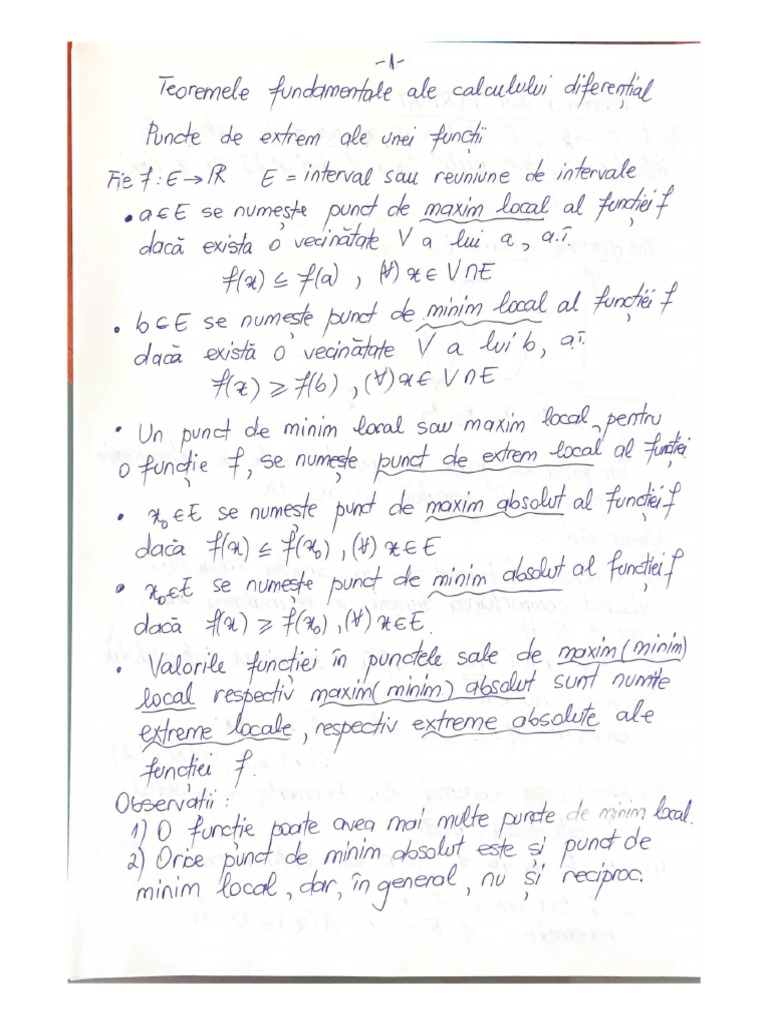 -1-
Teoremele fundamentale ale calculului diferențial
Puncte de extrem ale unei funcții
Fie f : E → ℝ E = interval sau reuniune de intervale
• a ∈ E se numește punct de maxim local al funcției f
dacă exista o vecinătate V a lui a, a.î.
f(x) ≤ f(a) , (∀) x ∈ V ∩ E
• b ∈ E se numește punct de minim local al funcției f
dacă există o vecinătate V a lui b, a.î.
f(x) ≥ f(b) , (∀) x ∈ V ∩ E
• Un punct de minim local sau maxim local, pentru
o funcție f, se numește punct de extrem local al funcției.
• x₀ ∈ E se numește punct de maxim absolut al funcției f
dacă f(x) ≤ f(x₀) , (∀) x ∈ E
• x₀ ∈ E se numește punct de minim absolut al funcției f
dacă f(x) ≥ f(x₀) , (∀) x ∈ E.
• Valorile funcției în punctele sale de maxim (minim)
local respectiv maxim (minim) absolut sunt numite
extreme locale, respectiv extreme absolute ale
funcției f.
Observații :
1) O funcție poate avea mai multe puncte de minim local.
2) Orice punct de minim absolut este și punct de
minim local, dar, în general, nu și reciproc.